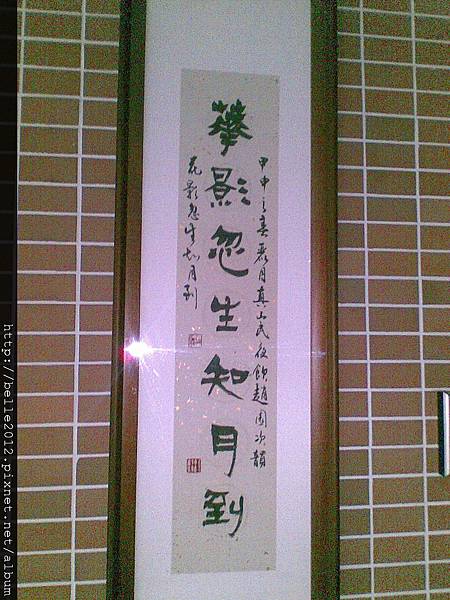 甲申之春㐮月真山民夜飲趙園次韻
華影忽生知月到
花影忽生知月到
http://belle2012.pixnet.net/album